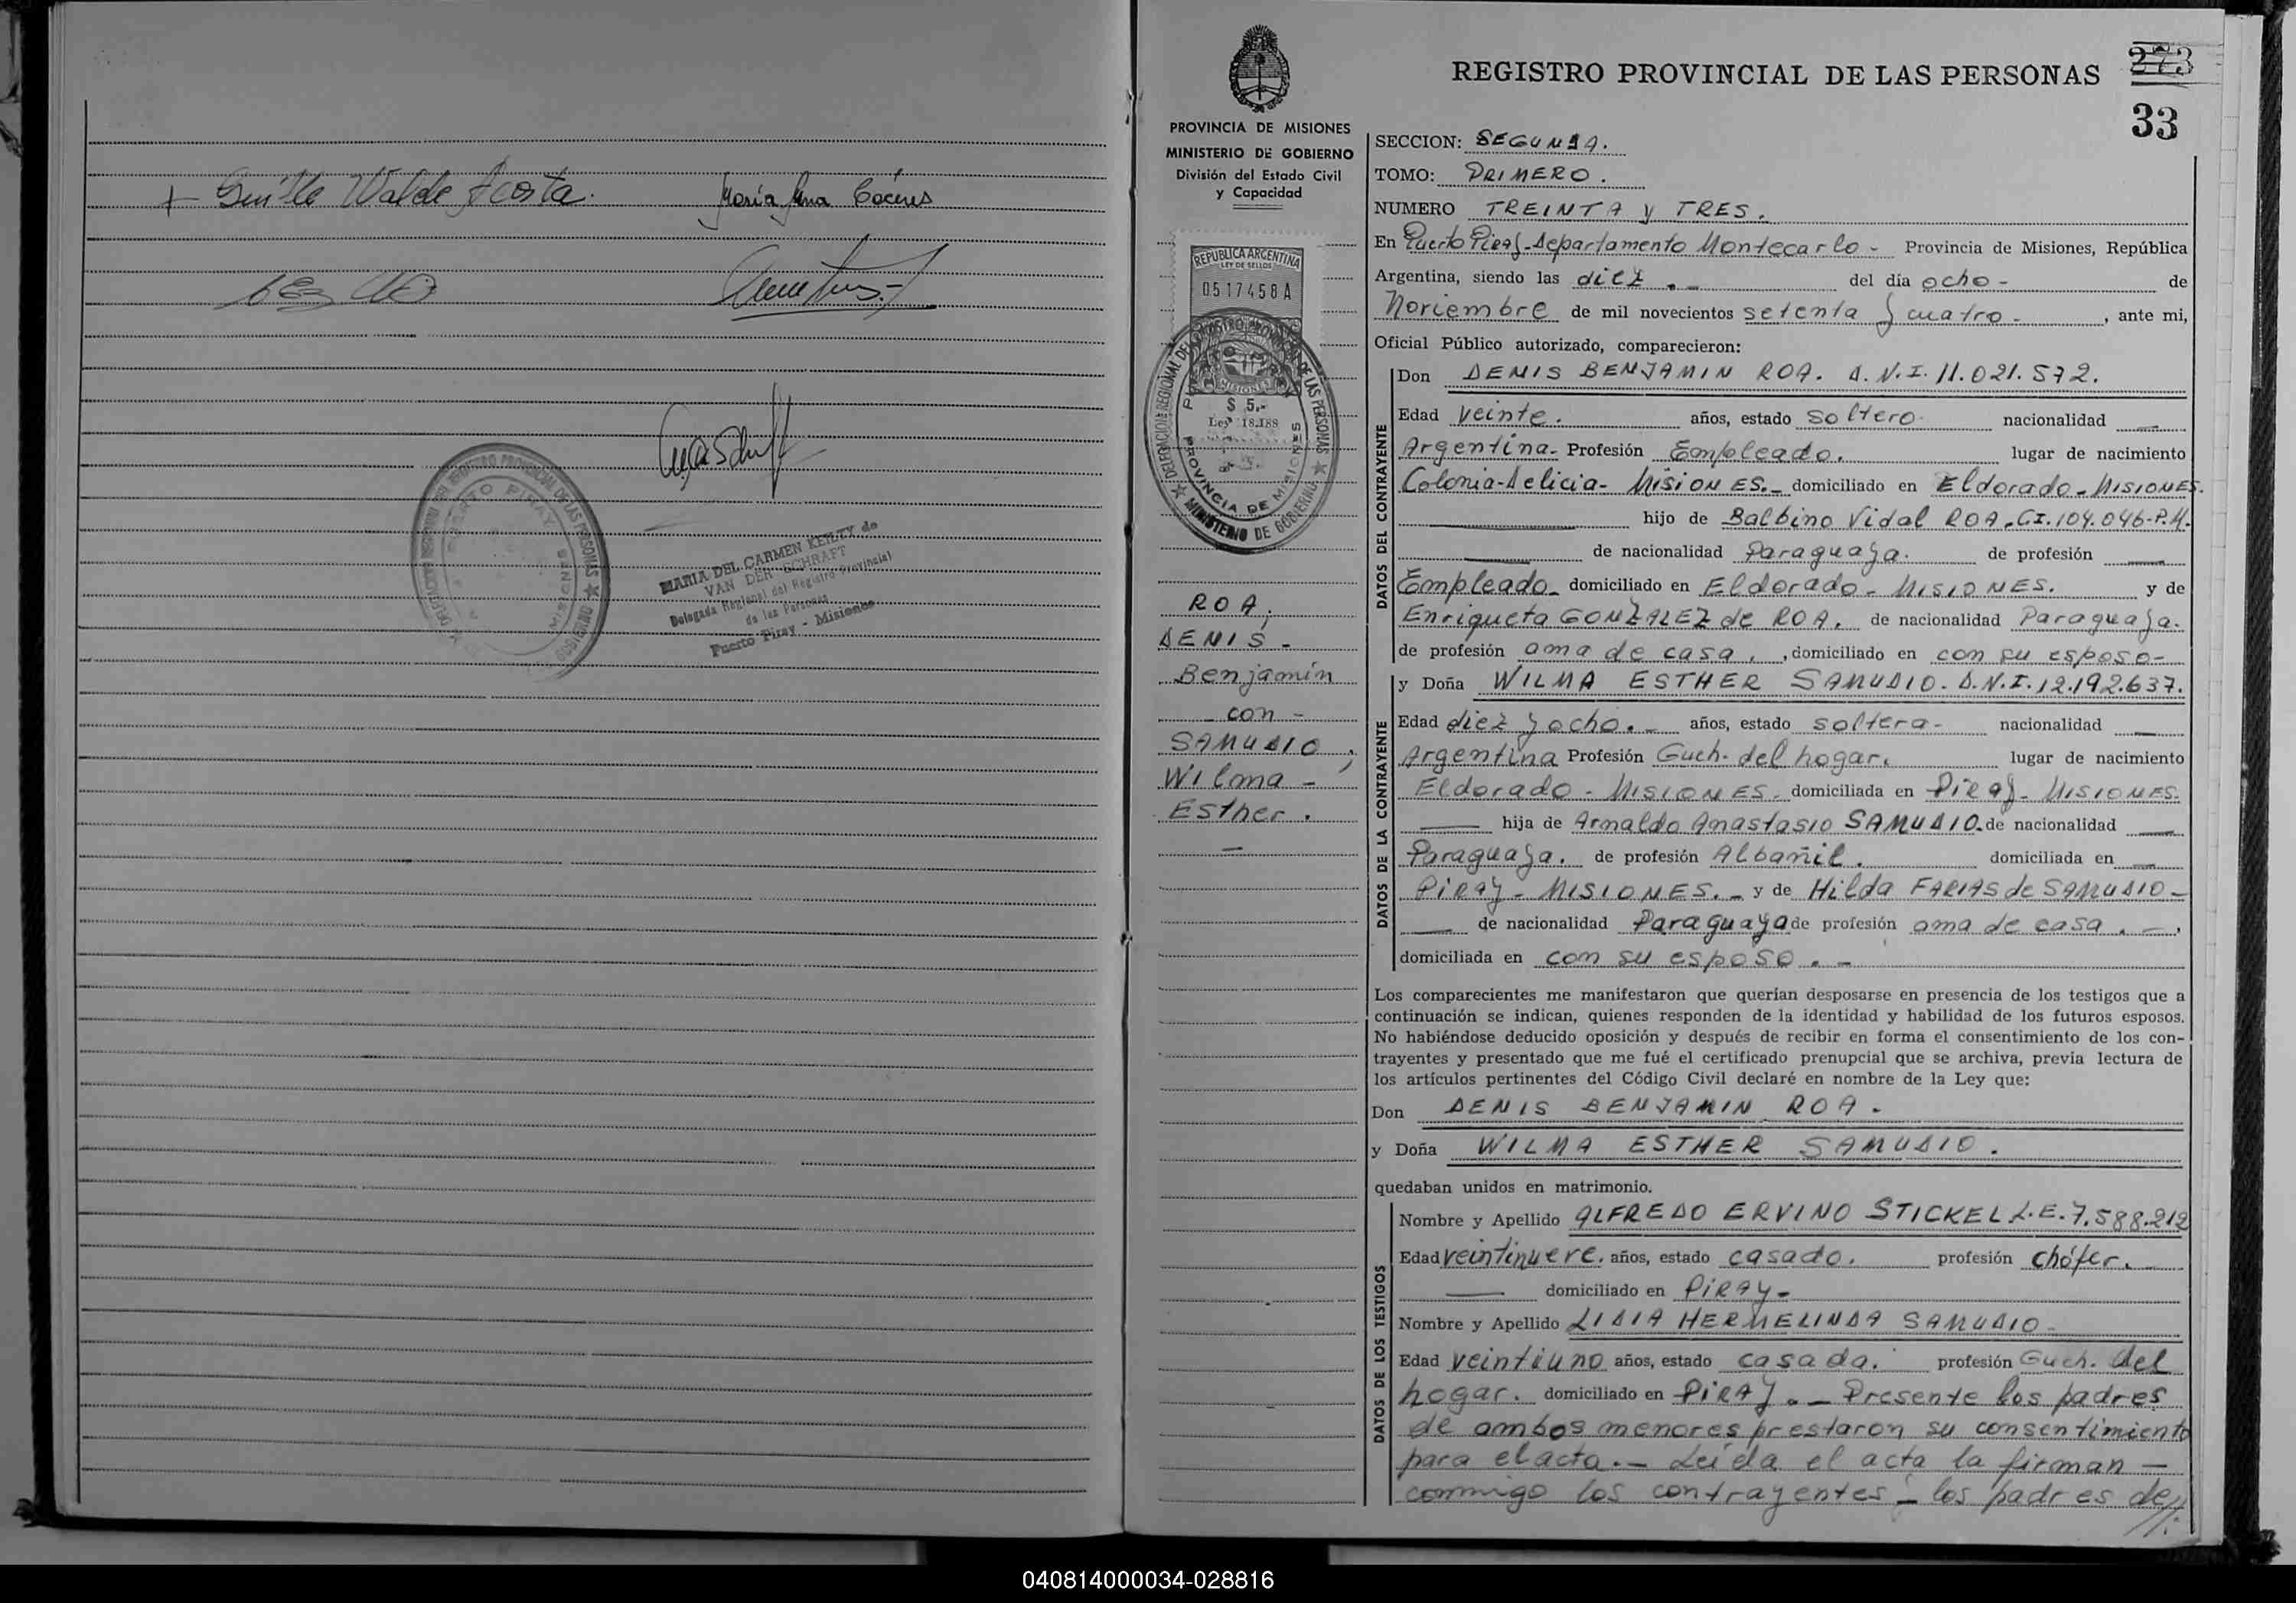 Walde Acosta. María Ana Cáceres
REGISTRO PROVINCIAL DEL REGISTRO PROVINCIAL DE LAS PERSONAS
PUERTO PIRAY
MARIA DEL CARMEN KEILTY de
VAN DER SCHRAFT
Delegada Regional del Registro Provincial
de las Personas
Puerto Piray - Misiones
REGISTRO PROVINCIAL DE LAS PERSONAS
273
33
PROVINCIA DE MISIONES
MINISTERIO DE GOBIERNO
División del Estado Civil
y Capacidad
REPUBLICA ARGENTINA
LEY DE SELLOS
0517458A
MISIONES
$ 5.-
Ley 18.188
DELEGACION REGIONAL DEL REGISTRO PROVINCIAL DE LAS PERSONAS
PROVINCIA DE MISIONES
MINISTERIO DE GOBIERNO
ROA,
DENIS -
Benjamín
con -
SAMUDIO,
Wilma -
Esther.
SECCION: SEGUNDA.
TOMO: PRIMERO.
NUMERO TREINTA y TRES.
En Puerto Piray-Departamento Montecarlo - Provincia de Misiones, República
Argentina, siendo las diez.- del día ocho - de
Noviembre de mil novecientos setenta y cuatro - , ante mi,
Oficial Público autorizado, comparecieron:
DATOS DEL CONTRAYENTE
Don DENIS BENJAMIN ROA. D.N.I. 11.021.572.
Edad veinte. años, estado soltero- nacionalidad
Argentina- Profesión Empleado. lugar de nacimiento
Colonia-Delicia- MISIONES.- domiciliado en Eldorado-MISIONES.
hijo de Balbino Vidal ROA.CI.104.046-P.M.
de nacionalidad Paraguaya. de profesión
Empleado- domiciliado en Eldorado- MISIONES. y de
Enriqueta GONZALEZ de ROA. de nacionalidad Paraguaya.
de profesión ama de casa. , domiciliado en con su esposo-
DATOS DE LA CONTRAYENTE
y Doña WILMA ESTHER SAMUDIO. D.N.I. 12.192.637.
Edad diez y ocho.- años, estado soltera- nacionalidad
Argentina Profesión Queh. del hogar. lugar de nacimiento
Eldorado - MISIONES- domiciliada en Piray- MISIONES.
hija de Arnaldo Anastasio SAMUDIO. de nacionalidad
Paraguaya. de profesión Albañil. domiciliada en
PIRAY- MISIONES.- y de Hilda FARIAS de SAMUDIO-
de nacionalidad Paraguaya de profesión ama de casa.-,
domiciliada en con su esposo.-
Los comparecientes me manifestaron que querían desposarse en presencia de los testigos que a
continuación se indican, quienes responden de la identidad y habilidad de los futuros esposos.
No habiéndose deducido oposición y después de recibir en forma el consentimiento de los con-
trayentes y presentado que me fué el certificado prenupcial que se archiva, previa lectura de
los artículos pertinentes del Código Civil declaré en nombre de la Ley que:
Don DENIS BENJAMIN ROA.
y Doña WILMA ESTHER SAMUDIO.
quedaban unidos en matrimonio.
DATOS DE LOS TESTIGOS
Nombre y Apellido ALFREDO ERVINO STICKEL L.E. 7.588.212
Edad veintinueve. años, estado casado. profesión chófer.
domiciliado en PIRAY-
Nombre y Apellido LIDIA HERMELINDA SAMUDIO-
Edad veintiuno años, estado casada. profesión Queh. del
hogar. domiciliado en PIRAY.- Presente los padres
de ambos menores prestaron su consentimiento
para el acta.- Leída el acta la firman -
conmigo los contrayentes - los padres de//.
040814000034-028816